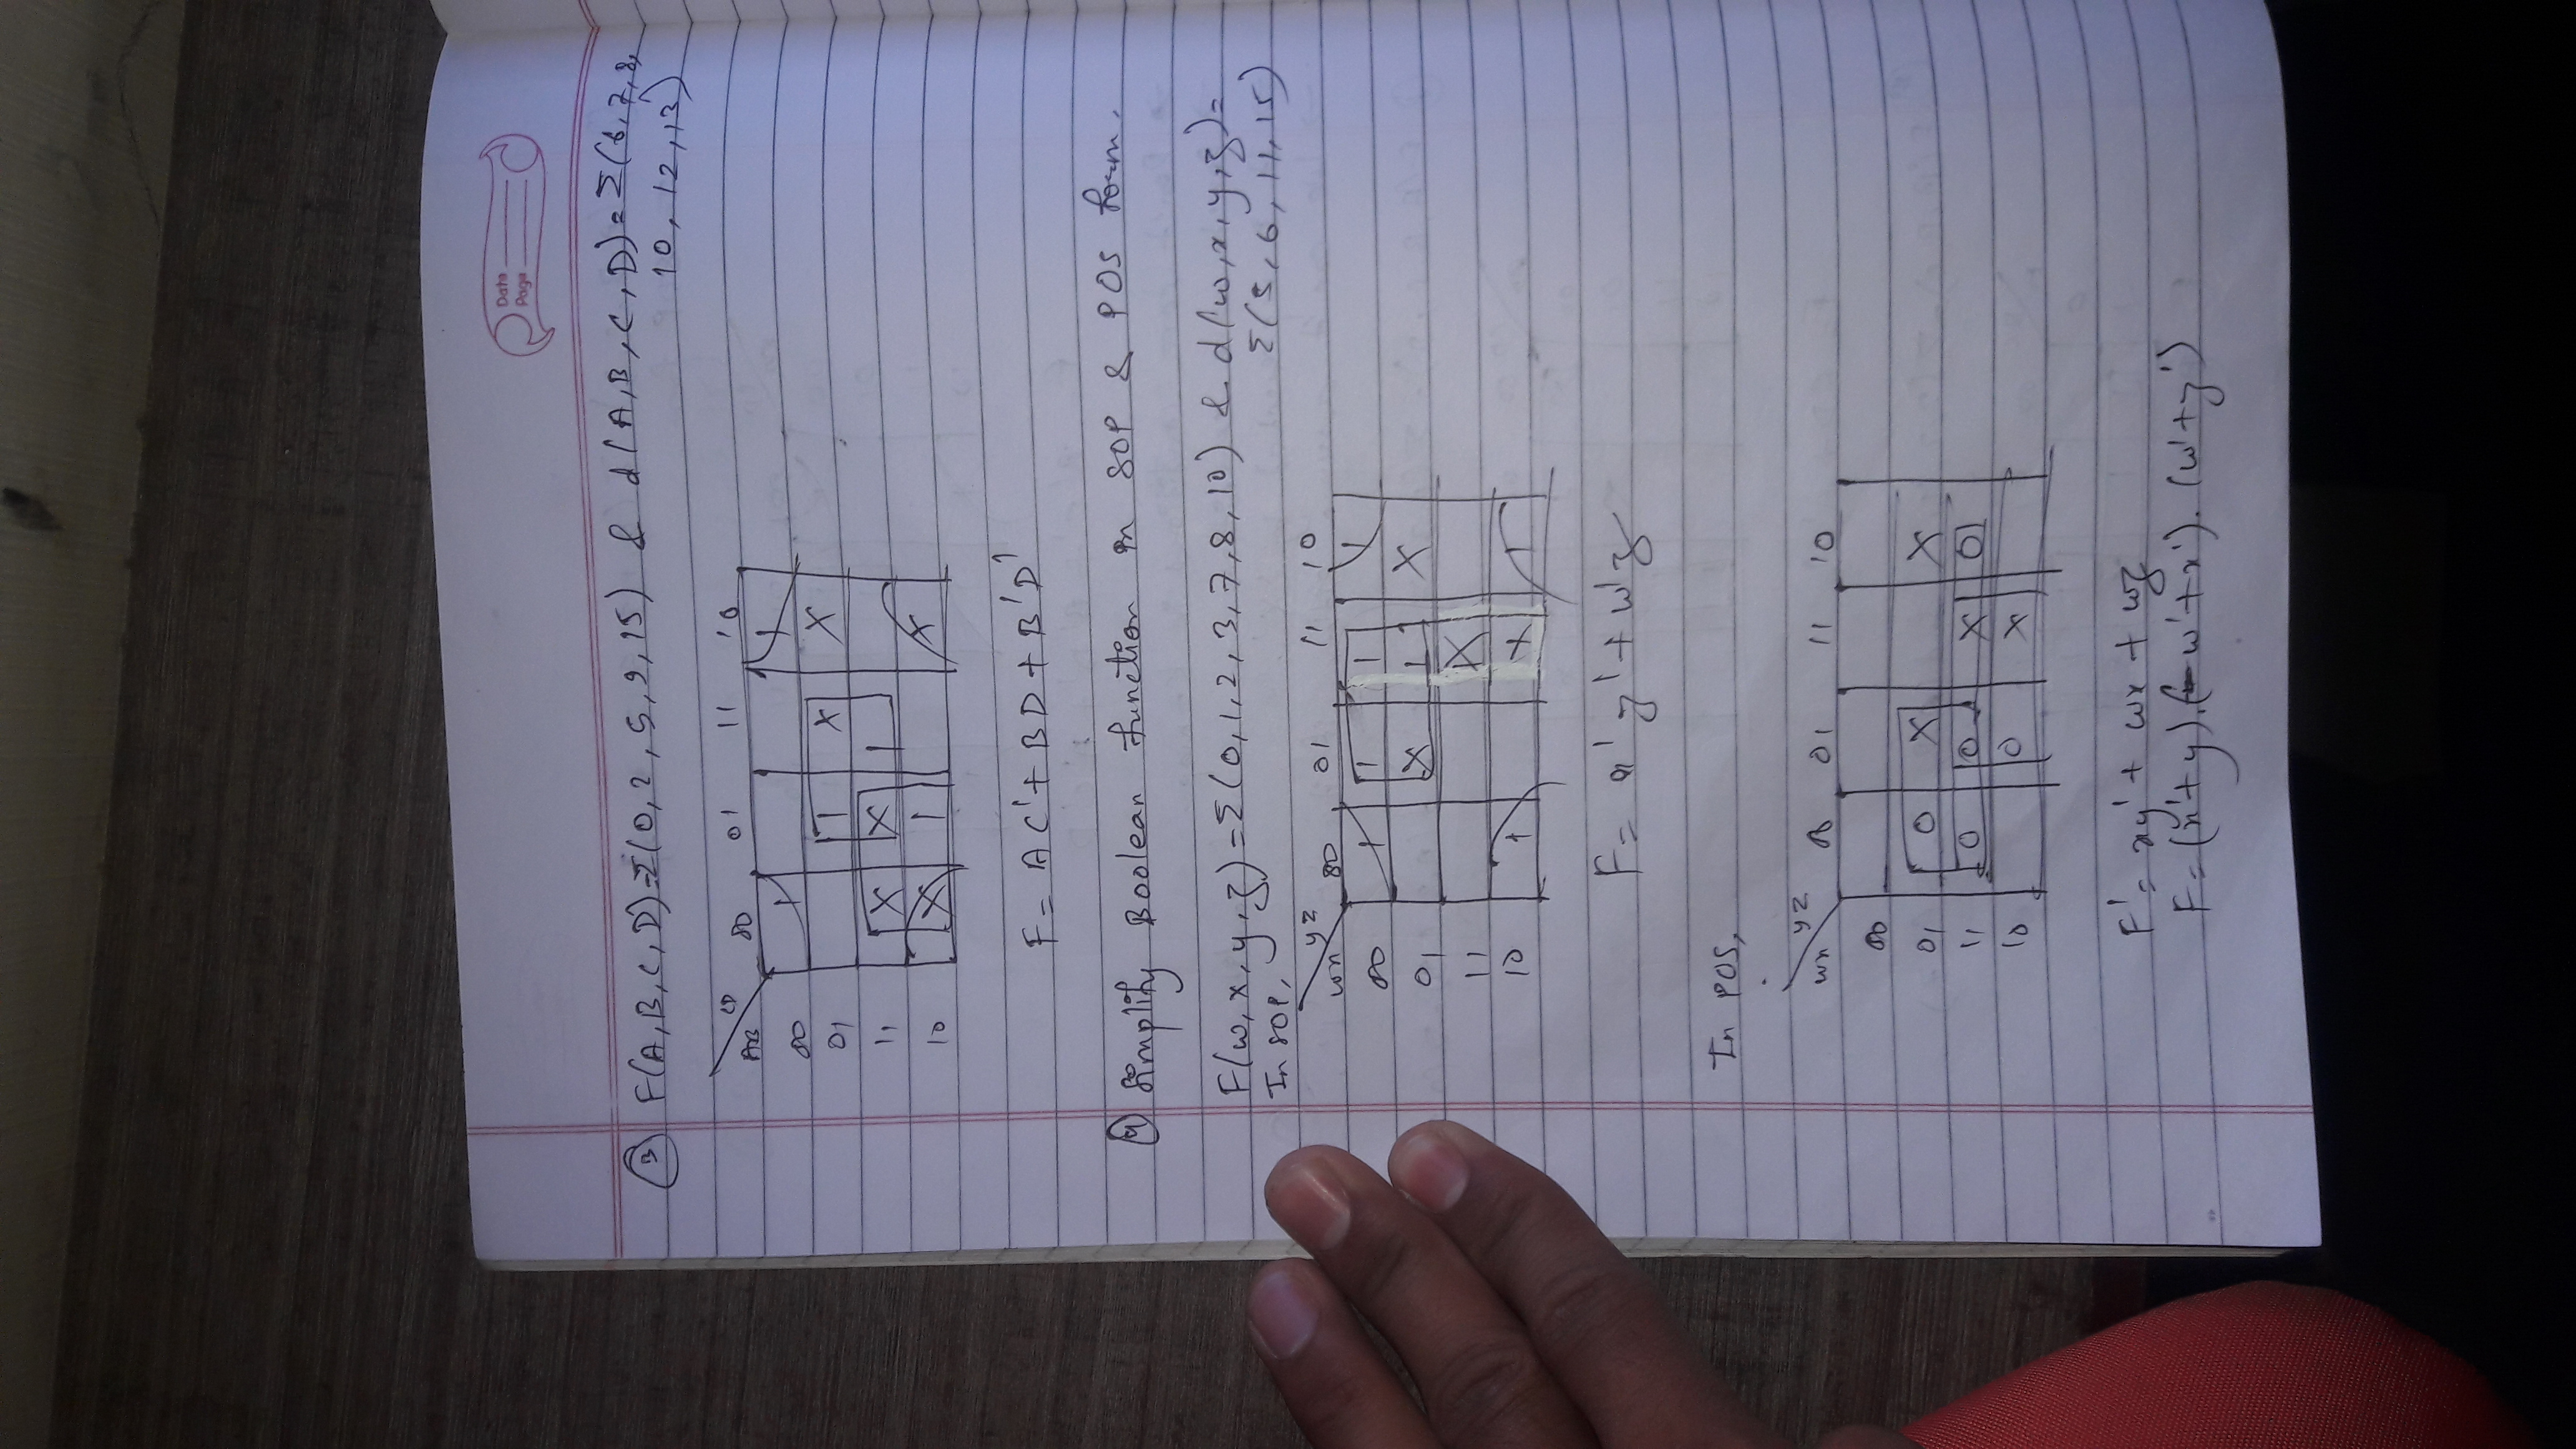 Date
Page
③ F(A,B,C,D)=Σ(0,2,5,9,15) & d(A,B,C,D)=Σ(6,7,8,
10,12,13)
CD
AB 00 01 11 10
00 1 1
01 1 X X
11 X X 1
10 X 1 X
F= AC'+BD+B'D'
④ Simplify Boolean function in SOP & POS form.
F(w,x,y,z)=Σ(0,1,2,3,7,8,10) & d(w,x,y,z)=
Σ(5,6,11,15)
In SOP,
yz
wx 00 01 11 10
00 1 1 1 1
01 X 1 X
11 X
10 1 X 1
F= x'z'+w'z
In POS,
yz
wx 00 01 11 10
00
01 0 X X
11 0 0 X 0
10 0 X
F'= xy'+ wx + wz
F=(x'+y).(w'+x').(w'+z')